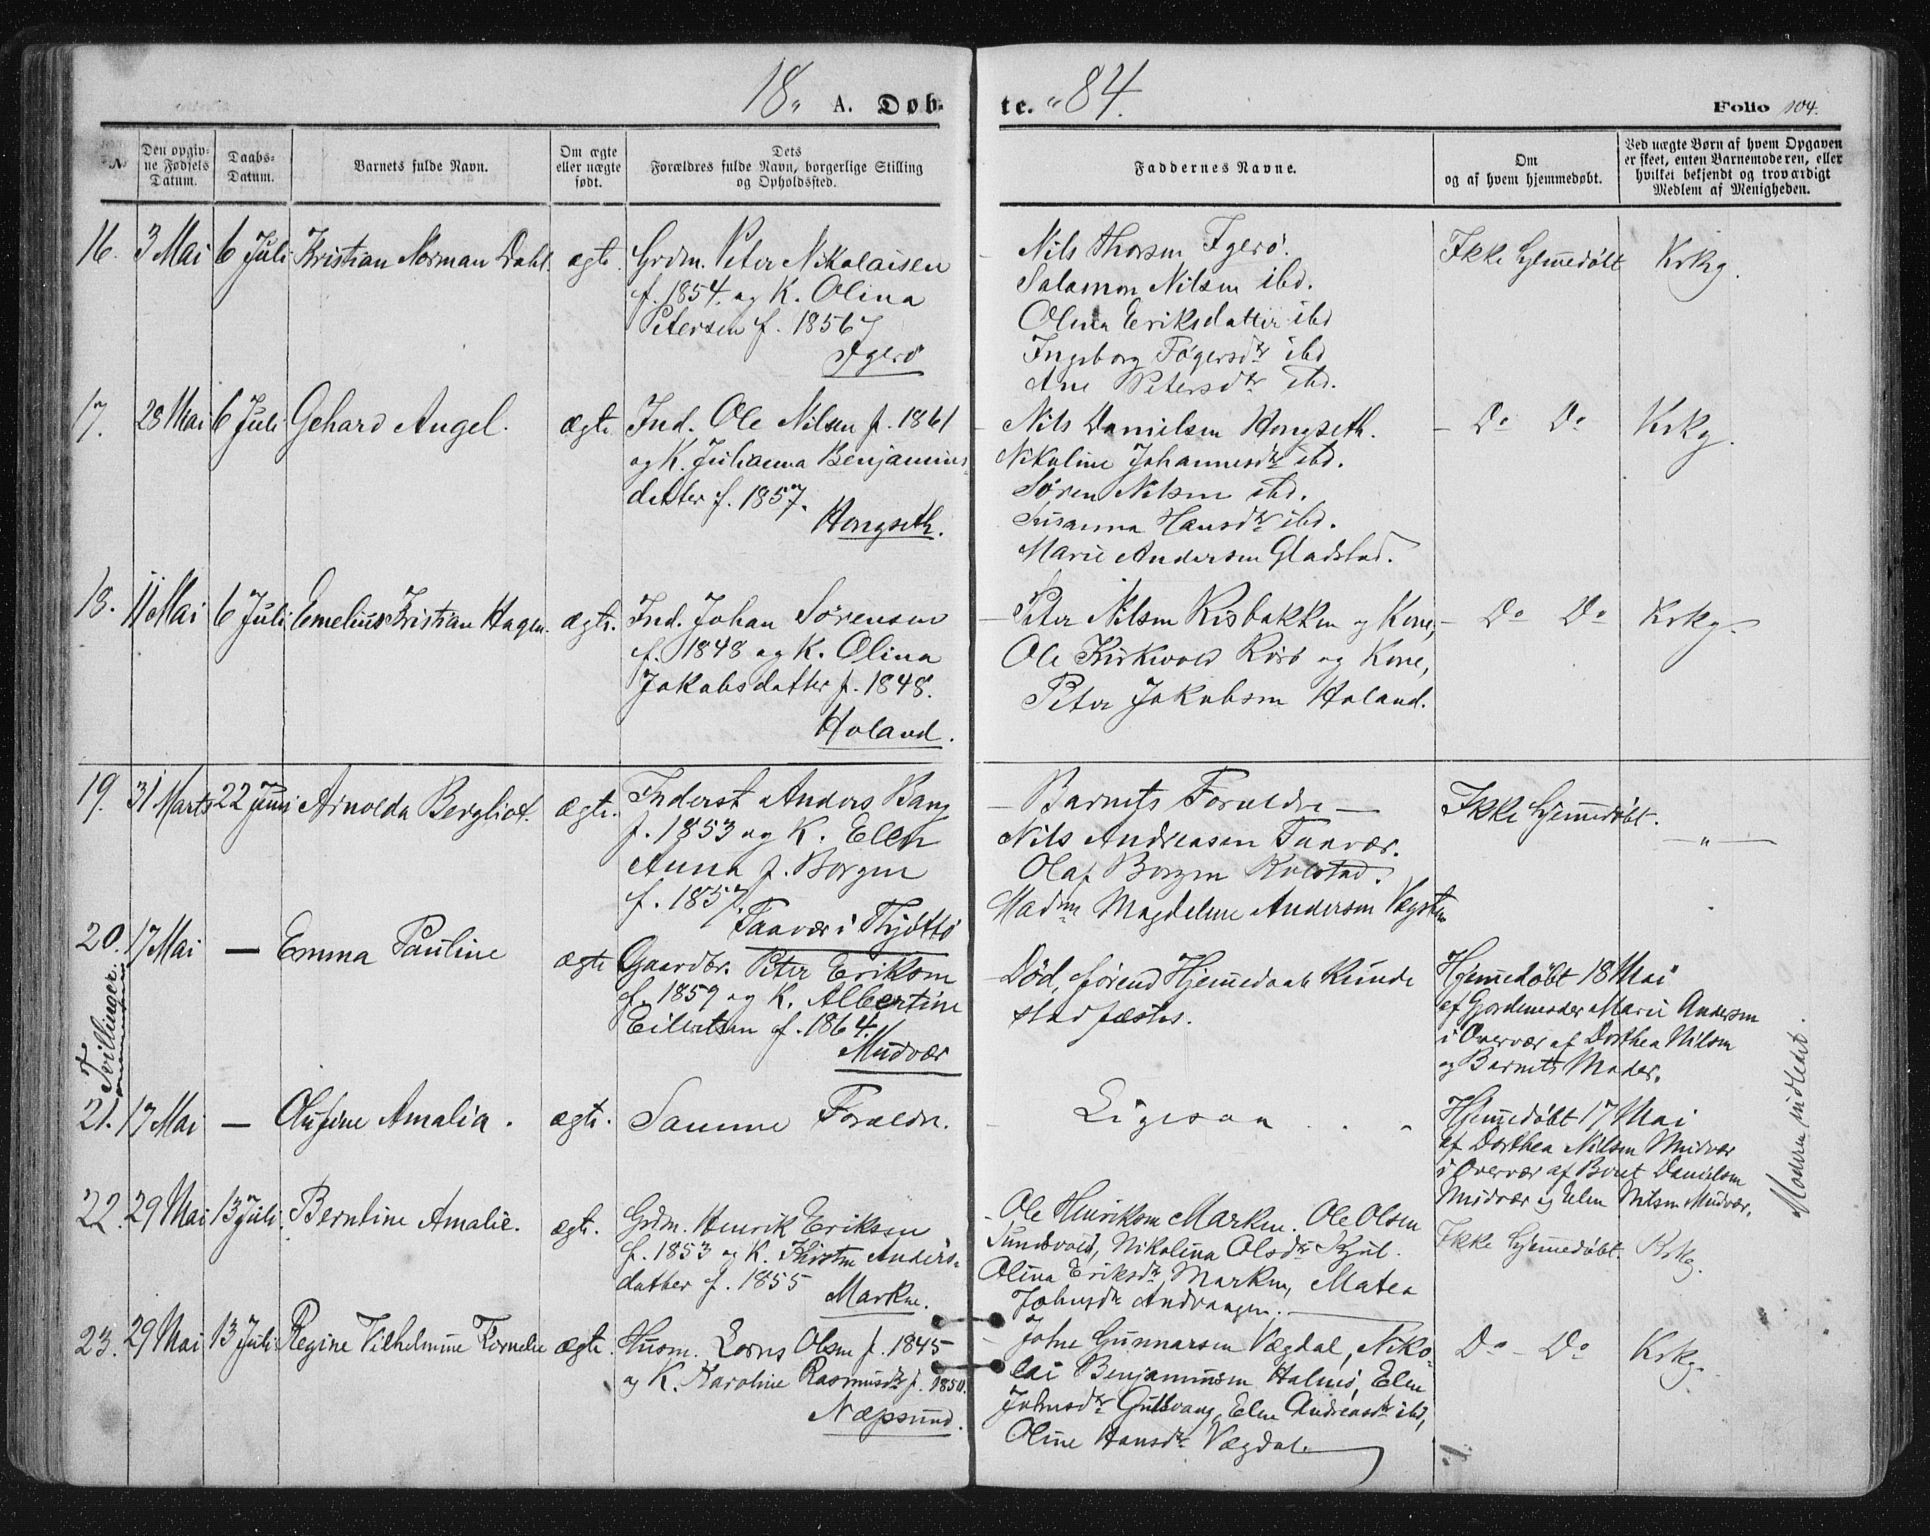 18 „ A. Døb-
te. „ 84.
Folio 104.
N.
Den opgiv-
ne Fødsels
Datum.
Daabs-
Datum.
Barnets fulde Navn.
Om ægte
eller uægte
født.
Dets
Forældres fulde Navn, borgerlige Stilling
og Opholdssted.
Faddernes Navne.
Om
og af hvem hjemmedøbt.
Ved uægte Børn af hvem Opgaven
er skeet, enten Barnemoderen, eller
hvilket bekjendt og troværdigt
Medlem af Menigheden.
16. 3 Mai 6 Juli Kristian Norman Dahl. ægte.
Grdm. Peter Nikolaisen
f. 1854. og K. Olina
Petersen f. 1856
Igerø
Nils Thorsen Igerø.
Salamon Nilsen ibd.
Olina Eriksdatter ibd
Ingeborg
Ane Petersdtr ibd.
Ikke hjemmedøbt
Krkg.
17. 28 Mai 6 Juli Gehard Angel. ægte
Ind. Ole Nilsen f. 1861
og K. Julianna Benjamins
datter f. 1857.
Hongseth.
Nils Danielsen Hongseth.
Nikoline Johannesdtr ibd.
Søren Nilsen ibd.
Susanna Hansdtr ibd.
Marie Andersen Gladstad.
– Do Do
Krkg.
18. 11 Mai 6 Juli Emelius Kristian Hagen. ægte.
Ind. Johan Sørensen
f. 1848 og K. Olina
Jakobsdatter f. 1848.
Holand.
– Peter Nilsen Risbakken og Kone,
Ole Kirkvold Rørø og Kone,
Peter Jakobsen Holand.
– Do Do
Krkg.
19. 31 Marts 22 Juni Arnolda Bergliot. ægte.
Inderst Anders Bang
f. 1853 og K. Elen
Anna f. Borgen
f. 1857.
Taavær i Thjøttø
– Barnets Forældre –
Nils Andreasen Taavær.
Olaf Borgen Rolstad.
Madm Magdelene Andersen
Ikke hjemmedøbt.
– „ –
20. 17 Mai – Emma Pauline ægte
Tvillinger.
Gaardbr. Peter Eriksen
f. 1859 og K. Albertine
Eilertsen f. 1864.
Mudvær
– Død, førend Hjemmedaab kunde
stadfæstes.
Hjemmedøbt 18 Mai
af Gjordemoder Marie Andersen
i Overvær af Dorthea Nilsen
og Barnets Moder.
21. 17 Mai – Olufine Amalia. ægte.
Samme Forældre.
– Ligesaa . . .
Hjemmedøbt 17 Mai
af Dorthea Nilsen Mudvær
i Overvær af Beret Danielsen
Mudvær og Elen Nilsen Mudvær.
Moderen indledet.
22. 29 Mai 13 Juli. Berntine Amalie. ægte.
Grdm. Henrik Eriksen
f. 1853 og K. Anders-
datter f. 1855
Marken.
– Ole Henriksen Marken. Ole Olsen
Sundsvold, Nikolina Olsdtr
Olina Eriksdtr Marken, Matea
Johnsdtr
Ikke hjemmedøbt.
Krkg.
23. 29 Mai 13 Juli Regine Vilhelmine Kornelie ægte.
Husm. Lorns Olsen f. 1845
og K. Karoline Rasmusdtr f. 1850.
Næpsund.
– John Gunnarsen Vægdal, Niko-
lai Benjaminsen Holmø, Elen
Johnsdtr Gullvaag, Elen Andreasdtr ibd,
Oline Hansdtr Vægdal.
Do – Do
Krkg.